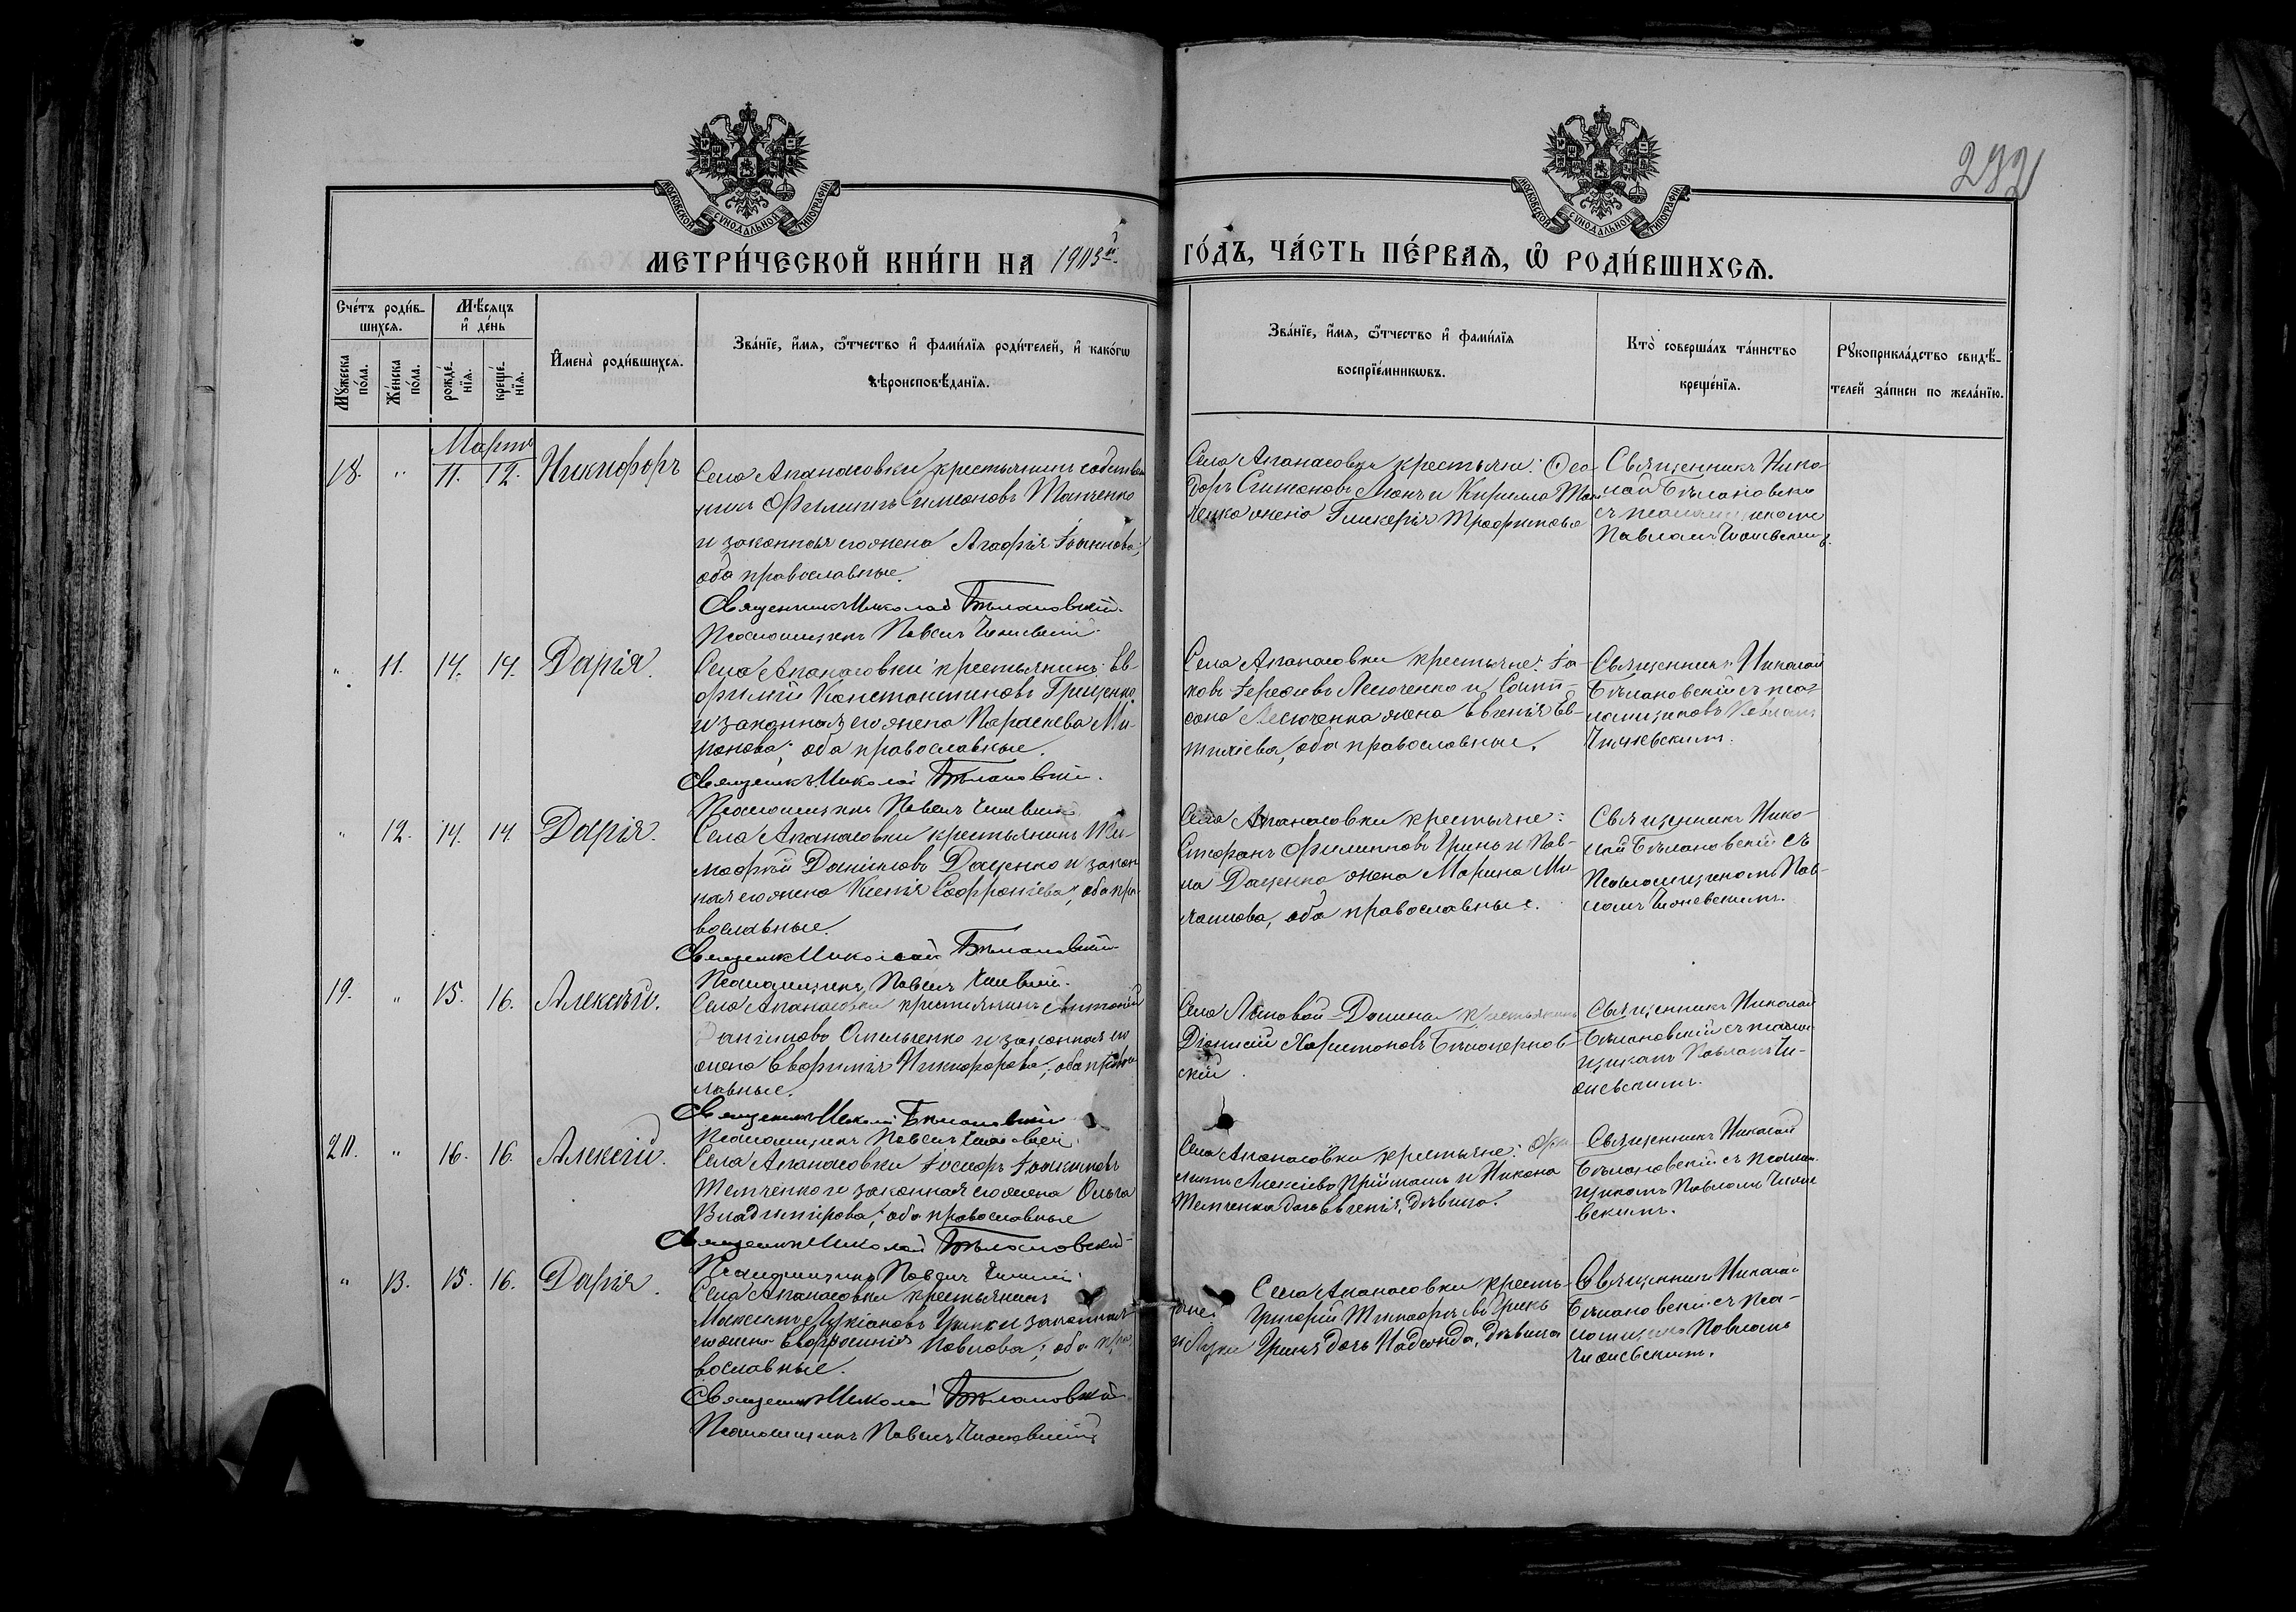 282
МОСКОВСКОЙ СѴНОДАЛЬНОЙ ТИПОГРАФІИ
МОСКОВСКОЙ СѴНОДАЛЬНОЙ ТИПОГРАФІИ
МЕТРИ́ЧЕСКОЙ КНИ́ГИ НА 1903й ГО́ДЪ, ЧА́СТЬ ПЕ́РВАѦ, Ѽ РОДИ́ВШИХСѦ.
Сче́тъ роди́в-
шихсѧ.
Мѣ́сѧцъ
и҆ де́нь
Мꙋ́жеска по́ла.
Же́нска по́ла.
рожде́-
нїѧ.
креще́-
нїѧ.
И҆мена̀ роди́вшихсѧ.
Зва́нїе, и҆́мѧ, ѻ҆́тчество и҆ фами́лїѧ роди́телей, и҆ како́гѡ
вѣроисповѣ́данїѧ.
Зва́нїе, и҆́мѧ, ѻ҆́тчество и҆ фами́лїѧ
воспрїе́мникѡвъ.
Кто̀ соверша́лъ та́инство
креще́нїѧ.
Рꙋкоприкла́дство свидѣ́-
телей за́писи по жела́нїю.
Марта
18. " 11. 12. Никифоръ
Села Апанасовки крестьянинъ собствен
никъ Филиппъ Симеоновъ
и законная его жена Агафія Іоаннова;
оба православные.
Священникъ Николай Бѣлановскій.
Псаломщикъ Павелъ
Села Апанасовки крестьяне: Ѳео-
доръ Симоновъ и Кирилла
жена Гликерія Трофимова
Священникъ Нико-
лай Бѣлановскій
съ псаломщикомъ
Павломъ
" 11. 14. 14. Дарія.
Села Апанасовки крестьянинъ Ев-
фимій Константиновъ Гриценко
и законная его жена Параскева Ми-
ронова; оба православные.
Священникъ Николай Бѣлановскій.
Псаломщикъ Павелъ
Села Апанасовки крестьяне: Іа-
ковъ Лесюченко и
Лесюченка жена Евгенія Ев-
тихіева, оба православные.
Священникъ Николай
Бѣлановскій съ псал-
омщикомъ Павломъ
" 12. 14. 14 Дарія.
Села Апанасовки крестьянинъ Ти-
мофей Даніиловъ Даценко и закон
ная его жена Ксенія Софроніева; оба пра
вославные.
Священникъ Николай Бѣлановскій
Псаломщикъ Павелъ
Села Апанасовки крестьяне:
Стефанъ Филипповъ Гринь и Пав-
ла Даценко жена Марина Ми-
хаилова, оба православные.
Священникъ Нико-
лай Бѣлановскій съ
Псаломщикомъ Пав-
ломъ
19. " 15. 16. Алексѣй.
Села Апанасовки крестьянинъ Антоній
Даніиловъ Омельченко и законная его
жена Евфимія Никифорова; оба правос
лавные.
Священникъ Николай Бѣлановскій
Псаломщикъ Павелъ
Села Липовой-Долины крестьянинъ
Діонисій Харитоновъ
скій.
Священникъ Николай
Бѣлановскій съ псалом
щикомъ Павломъ
20. " 16. 16. Алексій.
Села Апанасовки Іосифъ Іоакимовъ
Темченко и законная его жена Ольга
Владимірова; оба православные
Священникъ Николай Бѣлановскій
Псаломщикъ Павелъ
Села Апанасовки крестьяне:
Алексіевъ и Никона
Темченка дочь Евгенія, дѣвица.
Священникъ Николай
Бѣлановскій съ псалом
щикомъ Павломъ
" 13. 15. 16. Дарія.
Села Апанасовки крестьянинъ
Максимъ Лукіановъ и законная
его жена Евфросинія Павлова; оба пра
вославные.
Священникъ Николай Бѣлановскій
Псаломщикъ Павелъ
Села Апанасовки кресть-
яне: Григорій Тимофеевъ Гринь
и Луки Гриня дочь Надежда, дѣвица
Священникъ Николай
Бѣлановскій съ пса-
ломщикомъ Павломъ